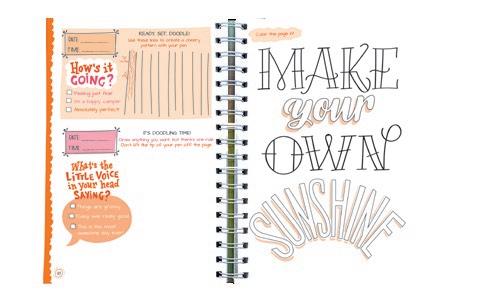 DATE:
TIME:
How's it
GOING?
Feeling just fine!
I'm a happy camper
Absolutely perfect!
READY, SET, DOODLE!
Use these lines to create a cheery
pattern with your pen
DATE:
TIME:
What's the
LITTLE VOICE
in your head
SAYING?
Things are groovy
Today was really good
This is the most
awesome day ever!
IT'S DOODLING TIME!
Draw anything you want but there's one rule:
Don't lift the tip of your pen off the page.
Color the page in!
MAKE
your
OWN
SUNSHINE